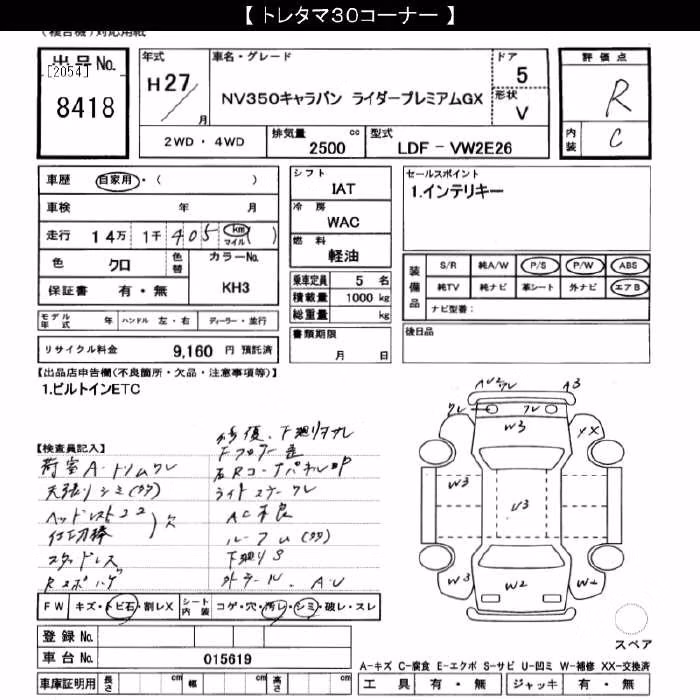 【 トレタマ30コーナー 】
(複合機)対応用紙
出品No. [2054] 8418
年式 H27/ 月
車名・グレード NV350キャラバン ライダープレミアムGX
ドア 5
形状 V
評価点 R
内装 C
2WD・4WD
排気量 cc 2500
型式 LDF - VW2E26
車歴 自家用・( )
車検 年 月
走行 14万 1千 405 km マイル ( )
色 クロ 色替 カラーNo. KH3
保証書 有・無
モデル年式 年 ハンドル 左・右 ディーラー・並行
リサイクル料金 9,160 円 預託済
シフト IAT
冷房 WAC
燃料 軽油
乗車定員 5 名
積載量 1000 kg
総重量 kg
書類期限 月 日
セールスポイント
1.インテリキー
装備品 S/R 純A/W P/S P/W ABS
純TV 純ナビ 革シート 外ナビ エアB
ナビ型番:
後日品
【出品店申告欄(不良箇所・欠品・注意事項等)】
1.ビルトインETC
【検査員記入】
荷室A・トリムワレ
天張りシミ(タタ)
ヘッドレスト22
仕切棒 ) 欠
スタッドレス
修復、下廻りサブレ
下フロアー歪
左RコーナーパネルP
ライトステーワレ
AC不良
ルーフム(タタ)
下廻りS
AU2ワレ
A3
ワレ
ワレ
W3
XX
W3
W3
U3
W3
W2
スペア
FW キズ・トビ石・割レX シート内装 コゲ・穴・汚レ・シミ・破レ・スレ
登録No.
車台No. 015619
A-キズ C-腐食 E-エクボ S-サビ U-凹ミ W-補修 XX-交換済
車庫証明用 長さ cm 幅 cm 高さ cm
工具 有・無 ジャッキ 有・無